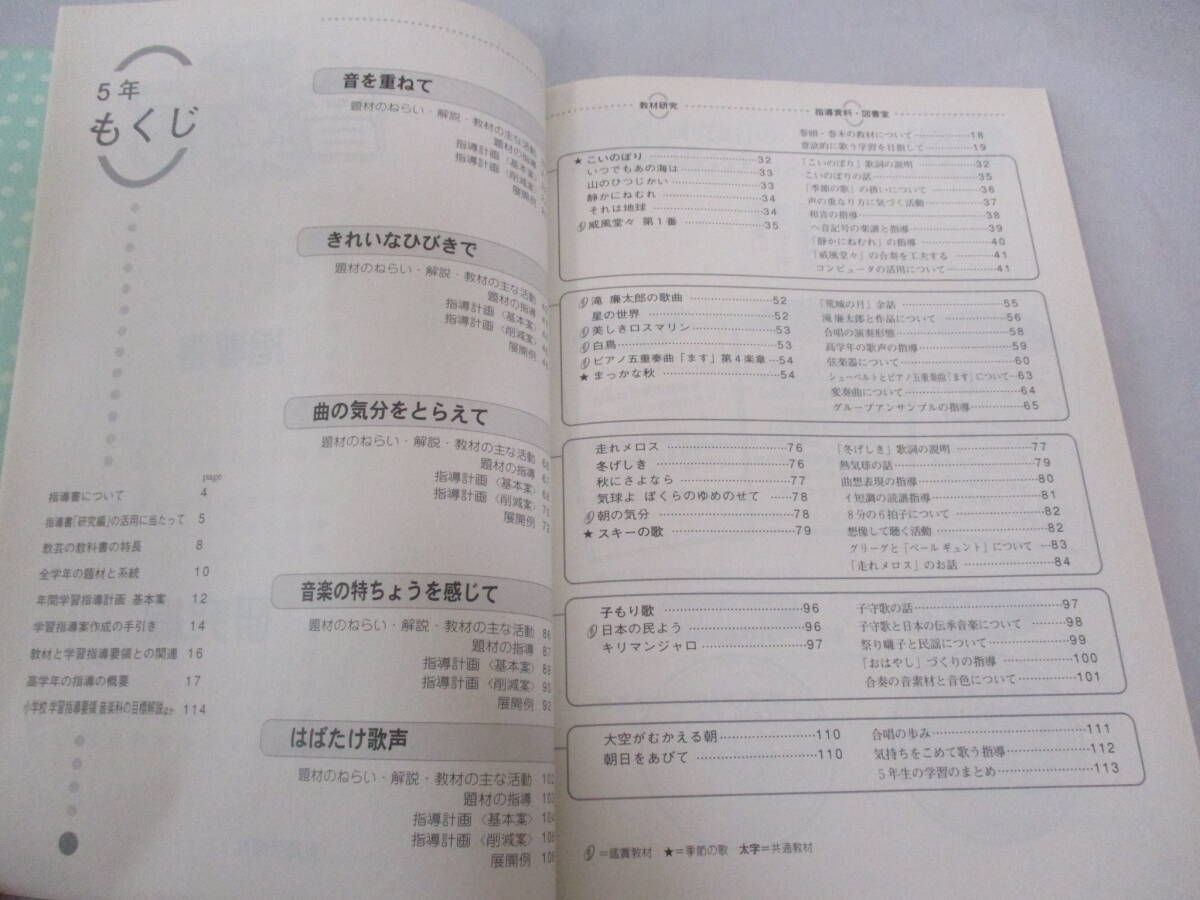 5年
もくじ
page
指導書について 4
指導書「研究編」の活用に当たって 5
教芸の教科書の特長 8
全学年の題材と系統 10
年間学習指導計画 基本案 12
学習指導案作成の手引き 14
教材と学習指導要領との関連 16
高学年の指導の概要 17
小学校学習指導要領 音楽科の目標解説ほか 114
音を重ねて
題材のねらい・解説・教材の主な活動
題材の指導
指導計画〈基本案〉
指導計画〈削減案〉
展開例
きれいなひびきで
題材のねらい・解説・教材の主な活動
題材の指導
指導計画〈基本案〉
指導計画〈削減案〉
展開例
曲の気分をとらえて
題材のねらい・解説・教材の主な活動 66
題材の指導 67
指導計画〈基本案〉 68
指導計画〈削減案〉 70
展開例 72
音楽の特ちょうを感じて
題材のねらい・解説・教材の主な活動 86
題材の指導 87
指導計画〈基本案〉 88
指導計画〈削減案〉 90
展開例 92
はばたけ歌声
題材のねらい・解説・教材の主な活動 102
題材の指導 103
指導計画〈基本案〉 104
指導計画〈削減案〉 106
展開例 108
教材研究
指導資料・図書室
巻頭・巻末の教材について 18
意欲的に歌う学習を目指して 19
★こいのぼり 32
いつでもあの海は 33
山のひつじかい 33
静かにねむれ 34
それは地球 34
威風堂々 第1番 35
「こいのぼり」歌詞の説明 32
こいのぼりの話 35
「季節の歌」の扱いについて 36
声の重なり方に気づく活動 37
和音の指導 38
ヘ音記号の楽譜と指導 39
「静かにねむれ」の指導 40
「威風堂々」の合奏を工夫する 41
コンピュータの活用について 41
滝 廉太郎の歌曲 52
星の世界 52
美しきロスマリン 53
白鳥 53
ピアノ五重奏曲「ます」第4楽章 54
★まっかな秋 54
「荒城の月」余話 55
滝廉太郎と作品について 56
合唱の演奏形態 58
高学年の歌声の指導 59
弦楽器について 60
シューベルトとピアノ五重奏曲「ます」について 63
変奏曲について 64
グループアンサンブルの指導 65
走れメロス 76
冬げしき 76
秋にさよなら 77
気球よ ぼくらのゆめのせて 78
朝の気分 78
★スキーの歌 79
「冬げしき」歌詞の説明 77
熱気球の話 79
曲想表現の指導 80
イ短調の読譜指導 81
8分の6拍子について 82
想像して聴く活動 82
グリーグと「ペール ギュント」について 83
「走れメロス」のお話 84
子もり歌 96
日本の民よう 96
キリマンジャロ 97
子守歌の話 97
子守歌と日本の伝承音楽について 98
祭り囃子と民謡について 99
「おはやし」づくりの指導 100
合奏の音素材と音色について 101
大空がむかえる朝 110
朝日をあびて 110
合唱の歩み 111
気持ちをこめて歌う指導 112
5年生の学習のまとめ 113
=鑑賞教材 ★=季節の歌 太字=共通教材